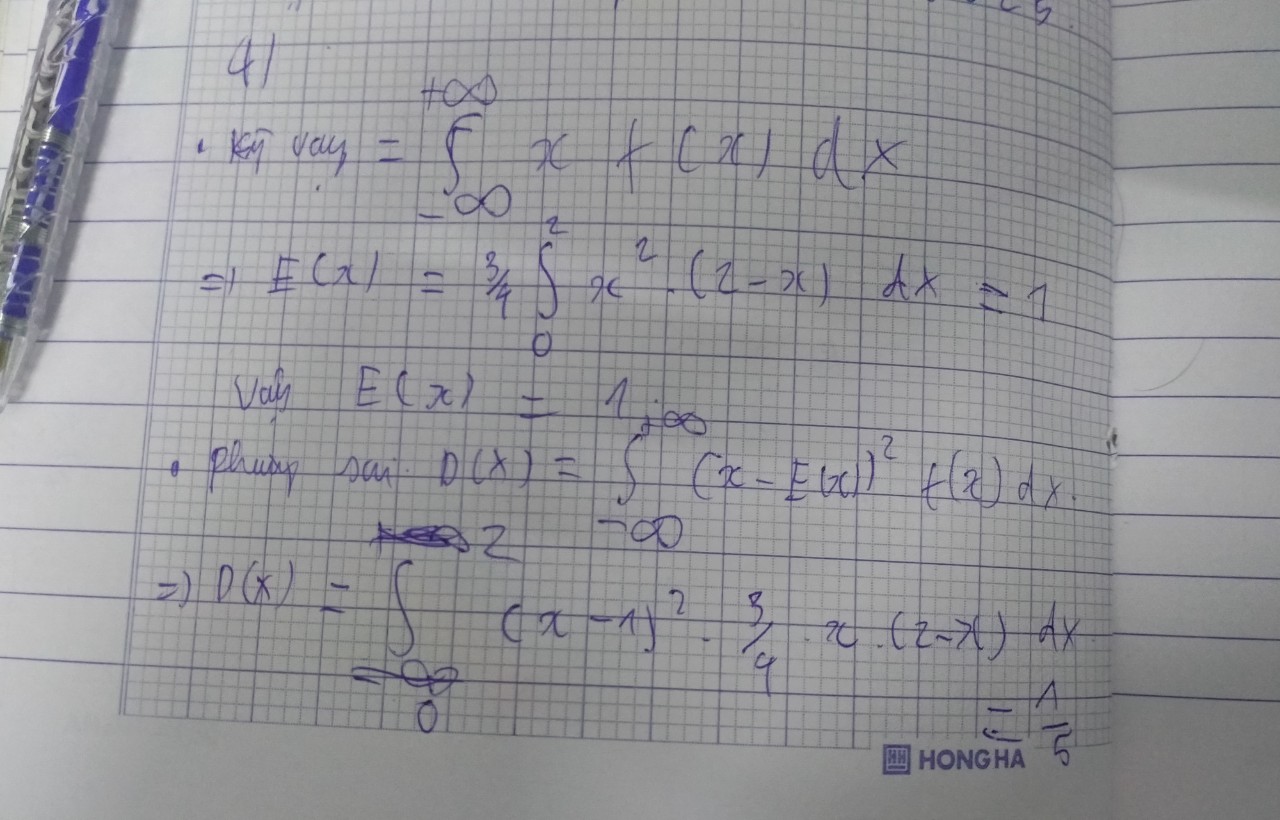 4)
. Kỳ vọng = ∫_{-∞}^{+∞} x f(x) dx
=> E(x) = 3/4 ∫_0^2 x^2 . (2-x) dx = 1
Vậy E(x) = 1
. phương sai D(X) = ∫_{-∞}^{+∞} (x - E(x))^2 f(x) dx.
=> D(X) = ∫_0^2 (x-1)^2 . 3/4 . x . (2-x) dx
= 1/5
HONG HA